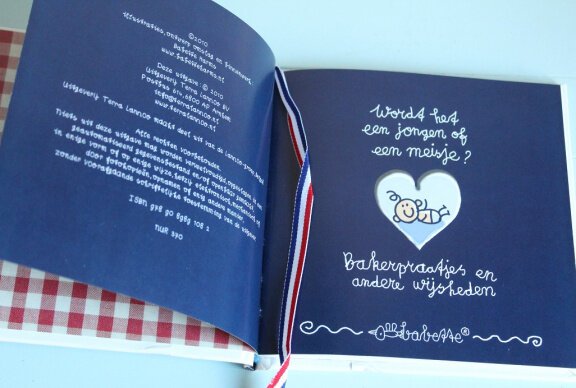 ©2010
Illustraties, ontwerp omslag en binnenwerk:
Babette Harms
www.babetteharms.nl
Deze uitgave: © 2010
Uitgeverij Terra Lannoo BV
Postbus 614, 6800 AP Arnhem
info@terralannoo.nl
www.terralannoo.nl
Uitgeverij Terra Lannoo maakt deel uit van de Lannoo-groep, België
Alle rechten voorbehouden.
Niets uit deze uitgave mag worden verveelvoudigd, opgeslagen in een
geautomatiseerd gegevensbestand en/of openbaar gemaakt
in enige vorm of op enige wijze, hetzij elektronisch, mechanisch of
door fotokopieën, opnamen of enig andere manier
zonder voorafgaande schriftelijke toestemming van de uitgever.
ISBN 978 90 8989 708 2
NUR 370
Wordt het
een jongen of
een meisje?
Bakerpraatjes en
andere wijsheden
babette®